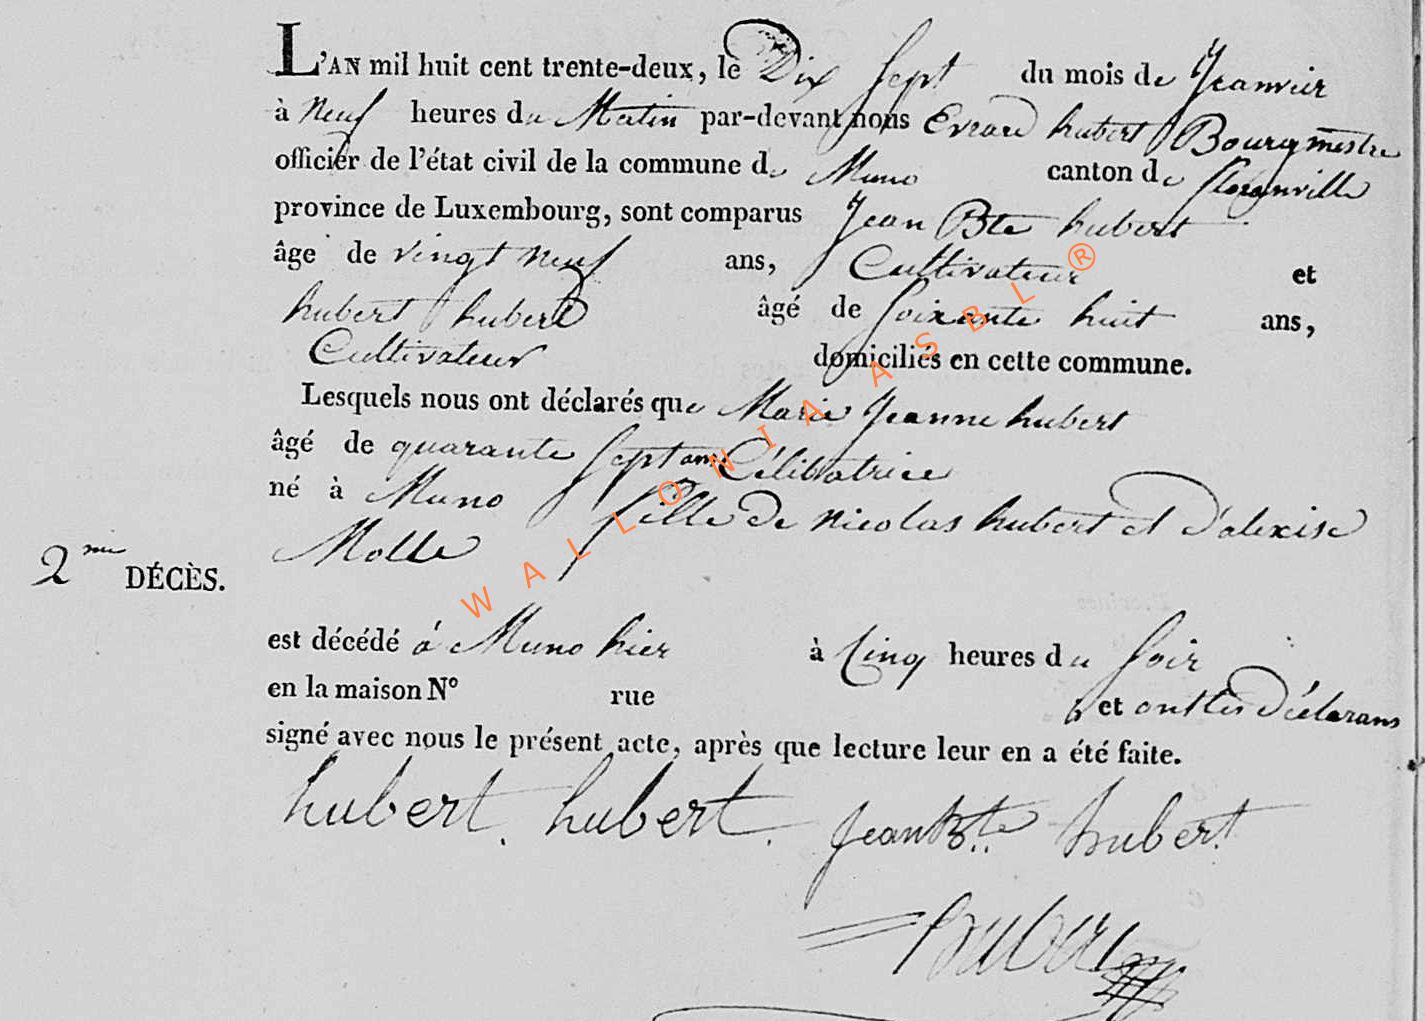 L'AN mil huit cent trente-deux, le Dix Sept du mois de Jeanvier
à Neuf heures du Matin par-devant nous Evrard hubert Bourgmestre
officier de l'état civil de la commune de Muno canton de florenville
province de Luxembourg, sont comparus Jean Bte hubert
âge de vingt neuf ans, Cultivateur et
hubert hubert âgé de soixante huit ans,
Cultivateur domiciliés en cette commune.
Lesquels nous ont déclarés que Marie Jeanne hubert
âgé de quarante Sept ans Célibatrice
né à Muno fille de nicolas hubert et d'alexise
Molle
2me DÉCÈS.
est décédé á Muno hier à Cinq heures du Soir
en la maison N° rue et ont les déclarans
signé avec nous le présent acte, après que lecture leur en a été faite.
hubert. hubert. jean Bte hubert.
hubert
WALLONIA ASBL ®